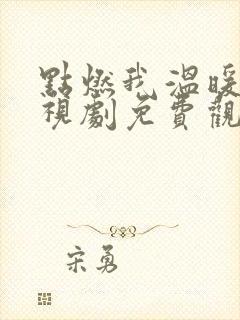 點燃我溫暖
視劇免費觀
宋勇